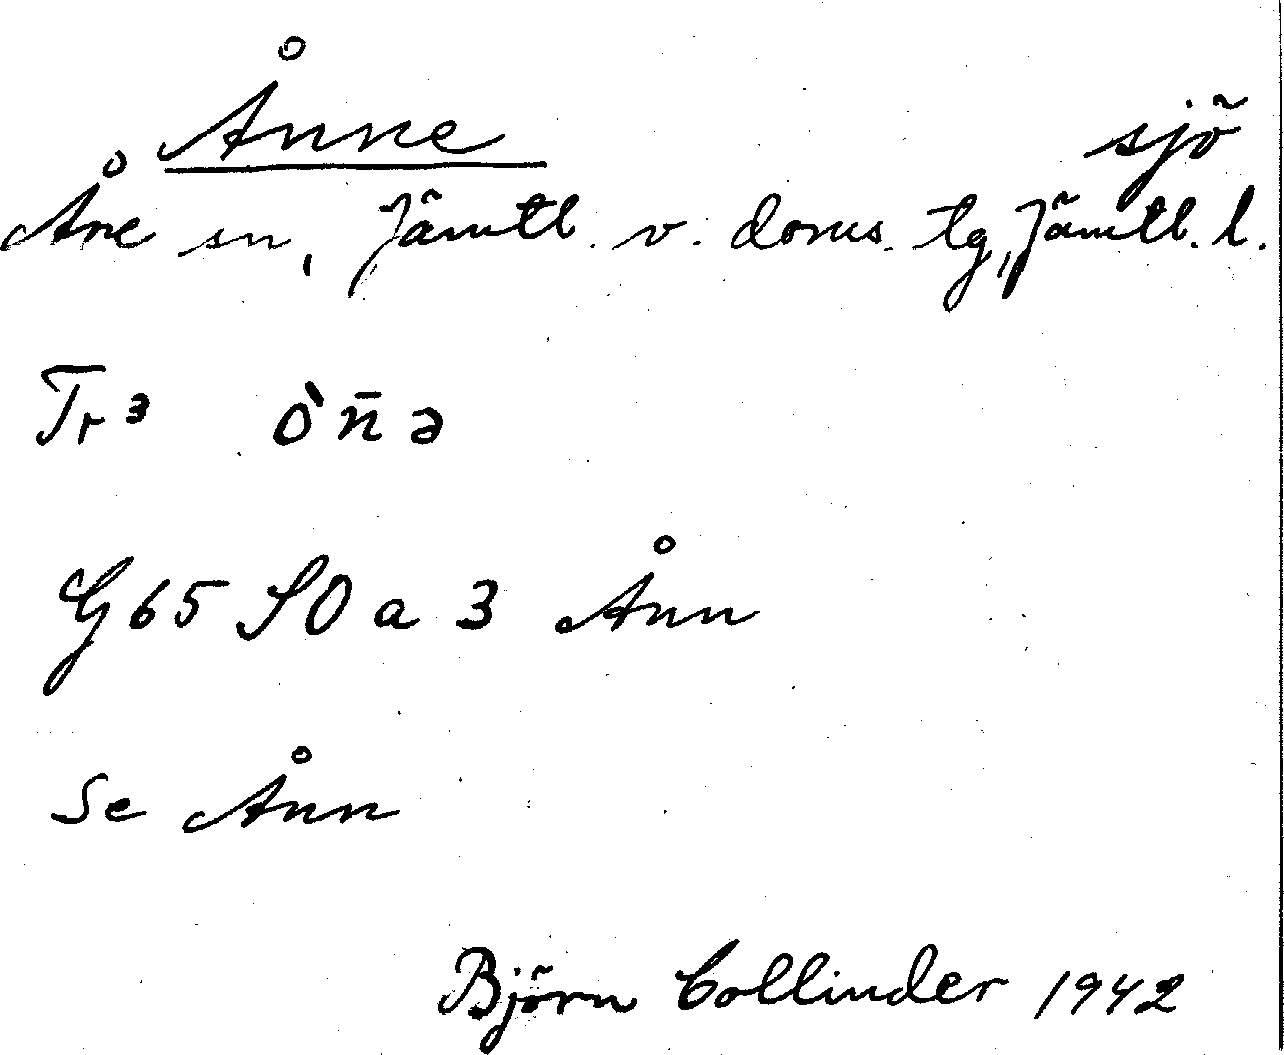 Ånne sjö
Åre sn, Jämtl. v. doms. tg, Jämtl. l.
Tr 3 ò n̄ ə
G 65 SO a 3 Ånn
Se Ånn
Björn Collinder 1942